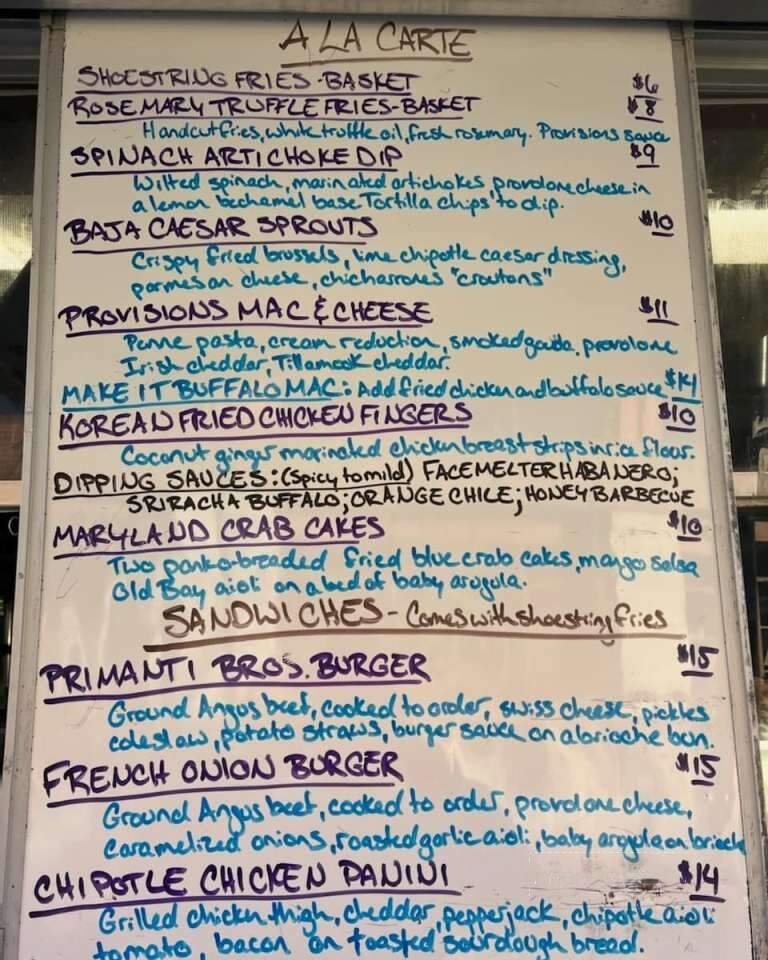 A LA CARTE
SHOESTRING FRIES-BASKET $6
ROSEMARY TRUFFLE FRIES-BASKET $8
Handcut fries, white truffle oil, fresh rosemary. Provisions sauce
SPINACH ARTICHOKE DIP $9
Wilted spinach, marinated artichokes, provolone cheese in
a lemon bechamel base Tortilla chips to dip.
BAJA CAESAR SPROUTS $10
Crispy fried brussels, lime chipotle caesar dressing,
parmesan cheese, chicharrones "croutons"
PROVISIONS MAC & CHEESE $11
Penne pasta, cream reduction, smoked gouda, provolone
Irish cheddar, Tillamook cheddar.
MAKE IT BUFFALO MAC: Add fried chicken and buffalo sauce $14
KOREAN FRIED CHICKEN FINGERS $10
Coconut ginger marinated chicken breast strips in rice flour.
DIPPING SAUCES: (Spicy to mild) FACEMELTER HABANERO;
SRIRACHA BUFFALO; ORANGE CHILE; HONEY BARBECUE
MARYLAND CRAB CAKES $10
Two panko-breaded fried blue crab cakes, mango salsa
Old Bay aioli on a bed of baby arugula.
SANDWICHES - Comes with shoestring fries
PRIMANTI BROS. BURGER $15
Ground Angus beef, cooked to order, swiss cheese, pickles
coleslaw, potato straws, burger sauce on a brioche bun.
FRENCH ONION BURGER $15
Ground Angus beef, cooked to order, provolone cheese,
caramelized onions, roasted garlic aioli, baby arugula on brioche
CHIPOTLE CHICKEN PANINI $14
Grilled chicken thigh, cheddar, pepperjack, chipotle aioli
tomato, bacon on toasted sourdough bread.